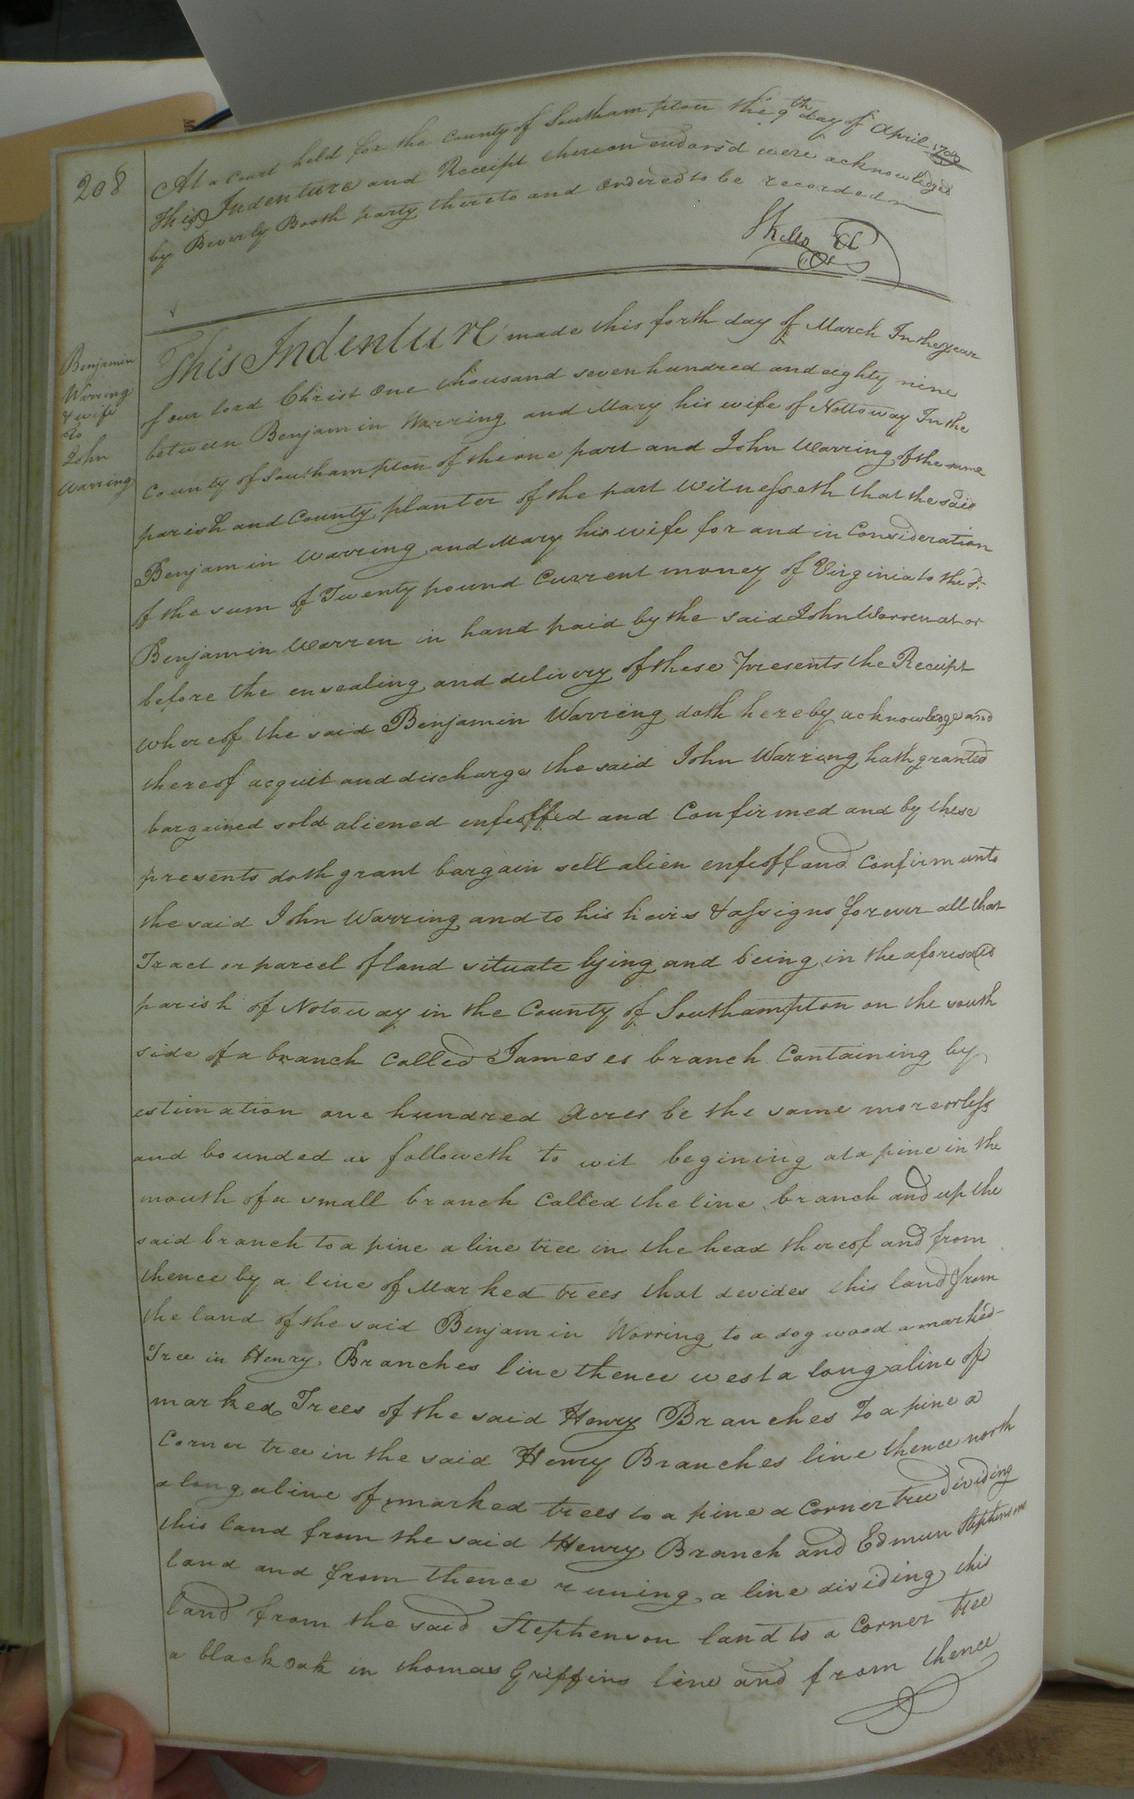 208
At a Court held for the County of Southampton the 9th day of April
This Indenture and Receipt thereon endorsd were acknowledged
by Beverly Booth party thereto and Ordered to be recorded
Benjamin
Worring
& wife
to
John
Warring
This Indenture made this forth day of March In the year
of our lord Christ One thousand sevenhundred and eighty nine
between Benjamin Warring and Mary his wife of Nottoway In the
County of Southampton of the one part and John Warring of the same
parish and County planter of the part Witnesseth that the said
Benjamin Warring and Mary his wife for and in Consideration
of the sum of Twenty pound Current money of Virginia to the sd.
Benjamin Warren in hand paid by the said John Warren at or
before the ensealing and delivery of these presents the Receipt
whereof the said Benjamin Warring doth hereby acknowledge and
thereof acquit and discharge the said John Warring hath granted
bargained sold aliened enfeoffed and Confirmed and by these
presents doth grant bargain sell alien enfeoff and Confirm unto
the said John Warring and to his heirs & assigns forever all that
Tract or parcel of land situate lying and being in the aforesaid
parish of Notoway in the County of Southampton on the south
side of a branch Called Jameses branch Containing by
estimation one hundred Acres be the same more or less
and bounded as followeth to wit begining at a pine in the
mouth of a small branch Called the line branch and up the
said branch to a pine a line tree in the head thereof and from
thence by a line of Marked trees that devides this land from
the land of the said Benjamin Worring to a dog wood a marked
Tree in Henry Branches line thence west a long a line of
marked Trees of the said Henry Branches To a pine a
Corner tree in the said Henry Branches line thence north
a long a line of marked trees to a pine a Corner tree dividing
this land from the said Henry Branch and Edmun Stephenson
land and from thence runing a line dividing this
land from the said Stephenson land to a Corner tree
a black oak in thomas Griffins line and from thence